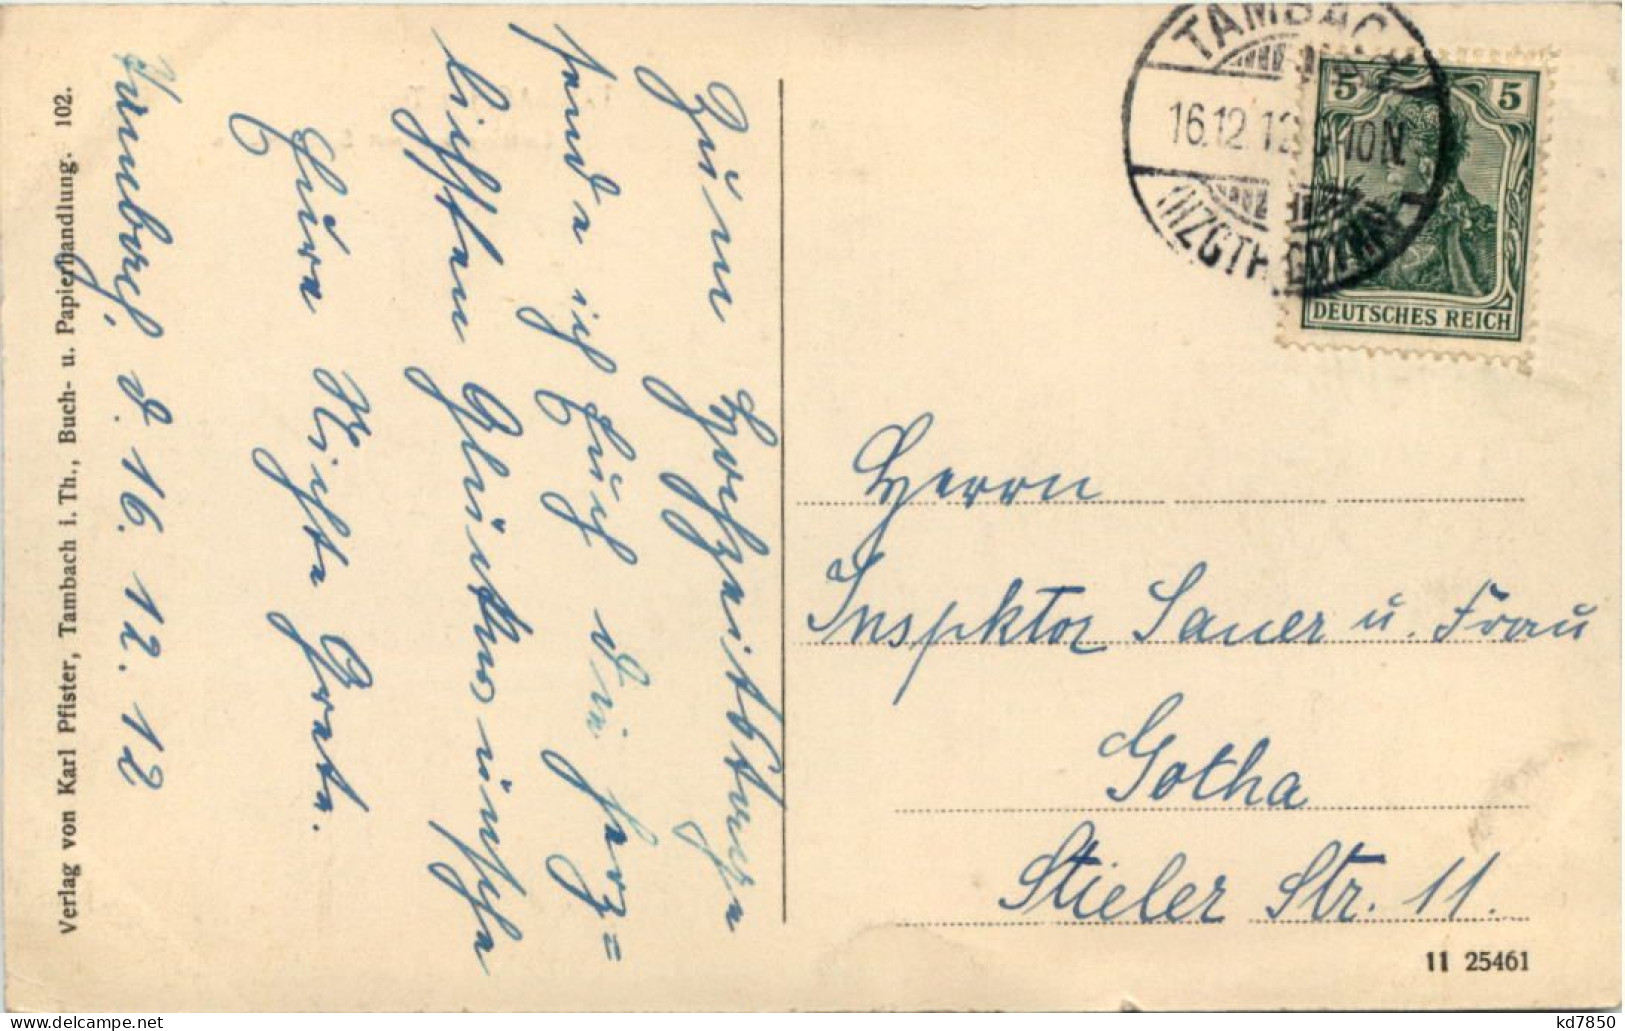 Zum Hochzeitstage
sende ich Euch die herz=
lichsten Glückwünsche
Eure Nichte Grete.
d. 16. 12. 12
Verlag von Karl Pfister, Tambach i. Th., Buch- u. Papierhandlung. 102.
TAMBACH
16.12.12
DEUTSCHES REICH
5 5
Herrn
Inspektor Sauer u. Frau
Gotha
Stieler Str. 11.
11 25461
kd7850